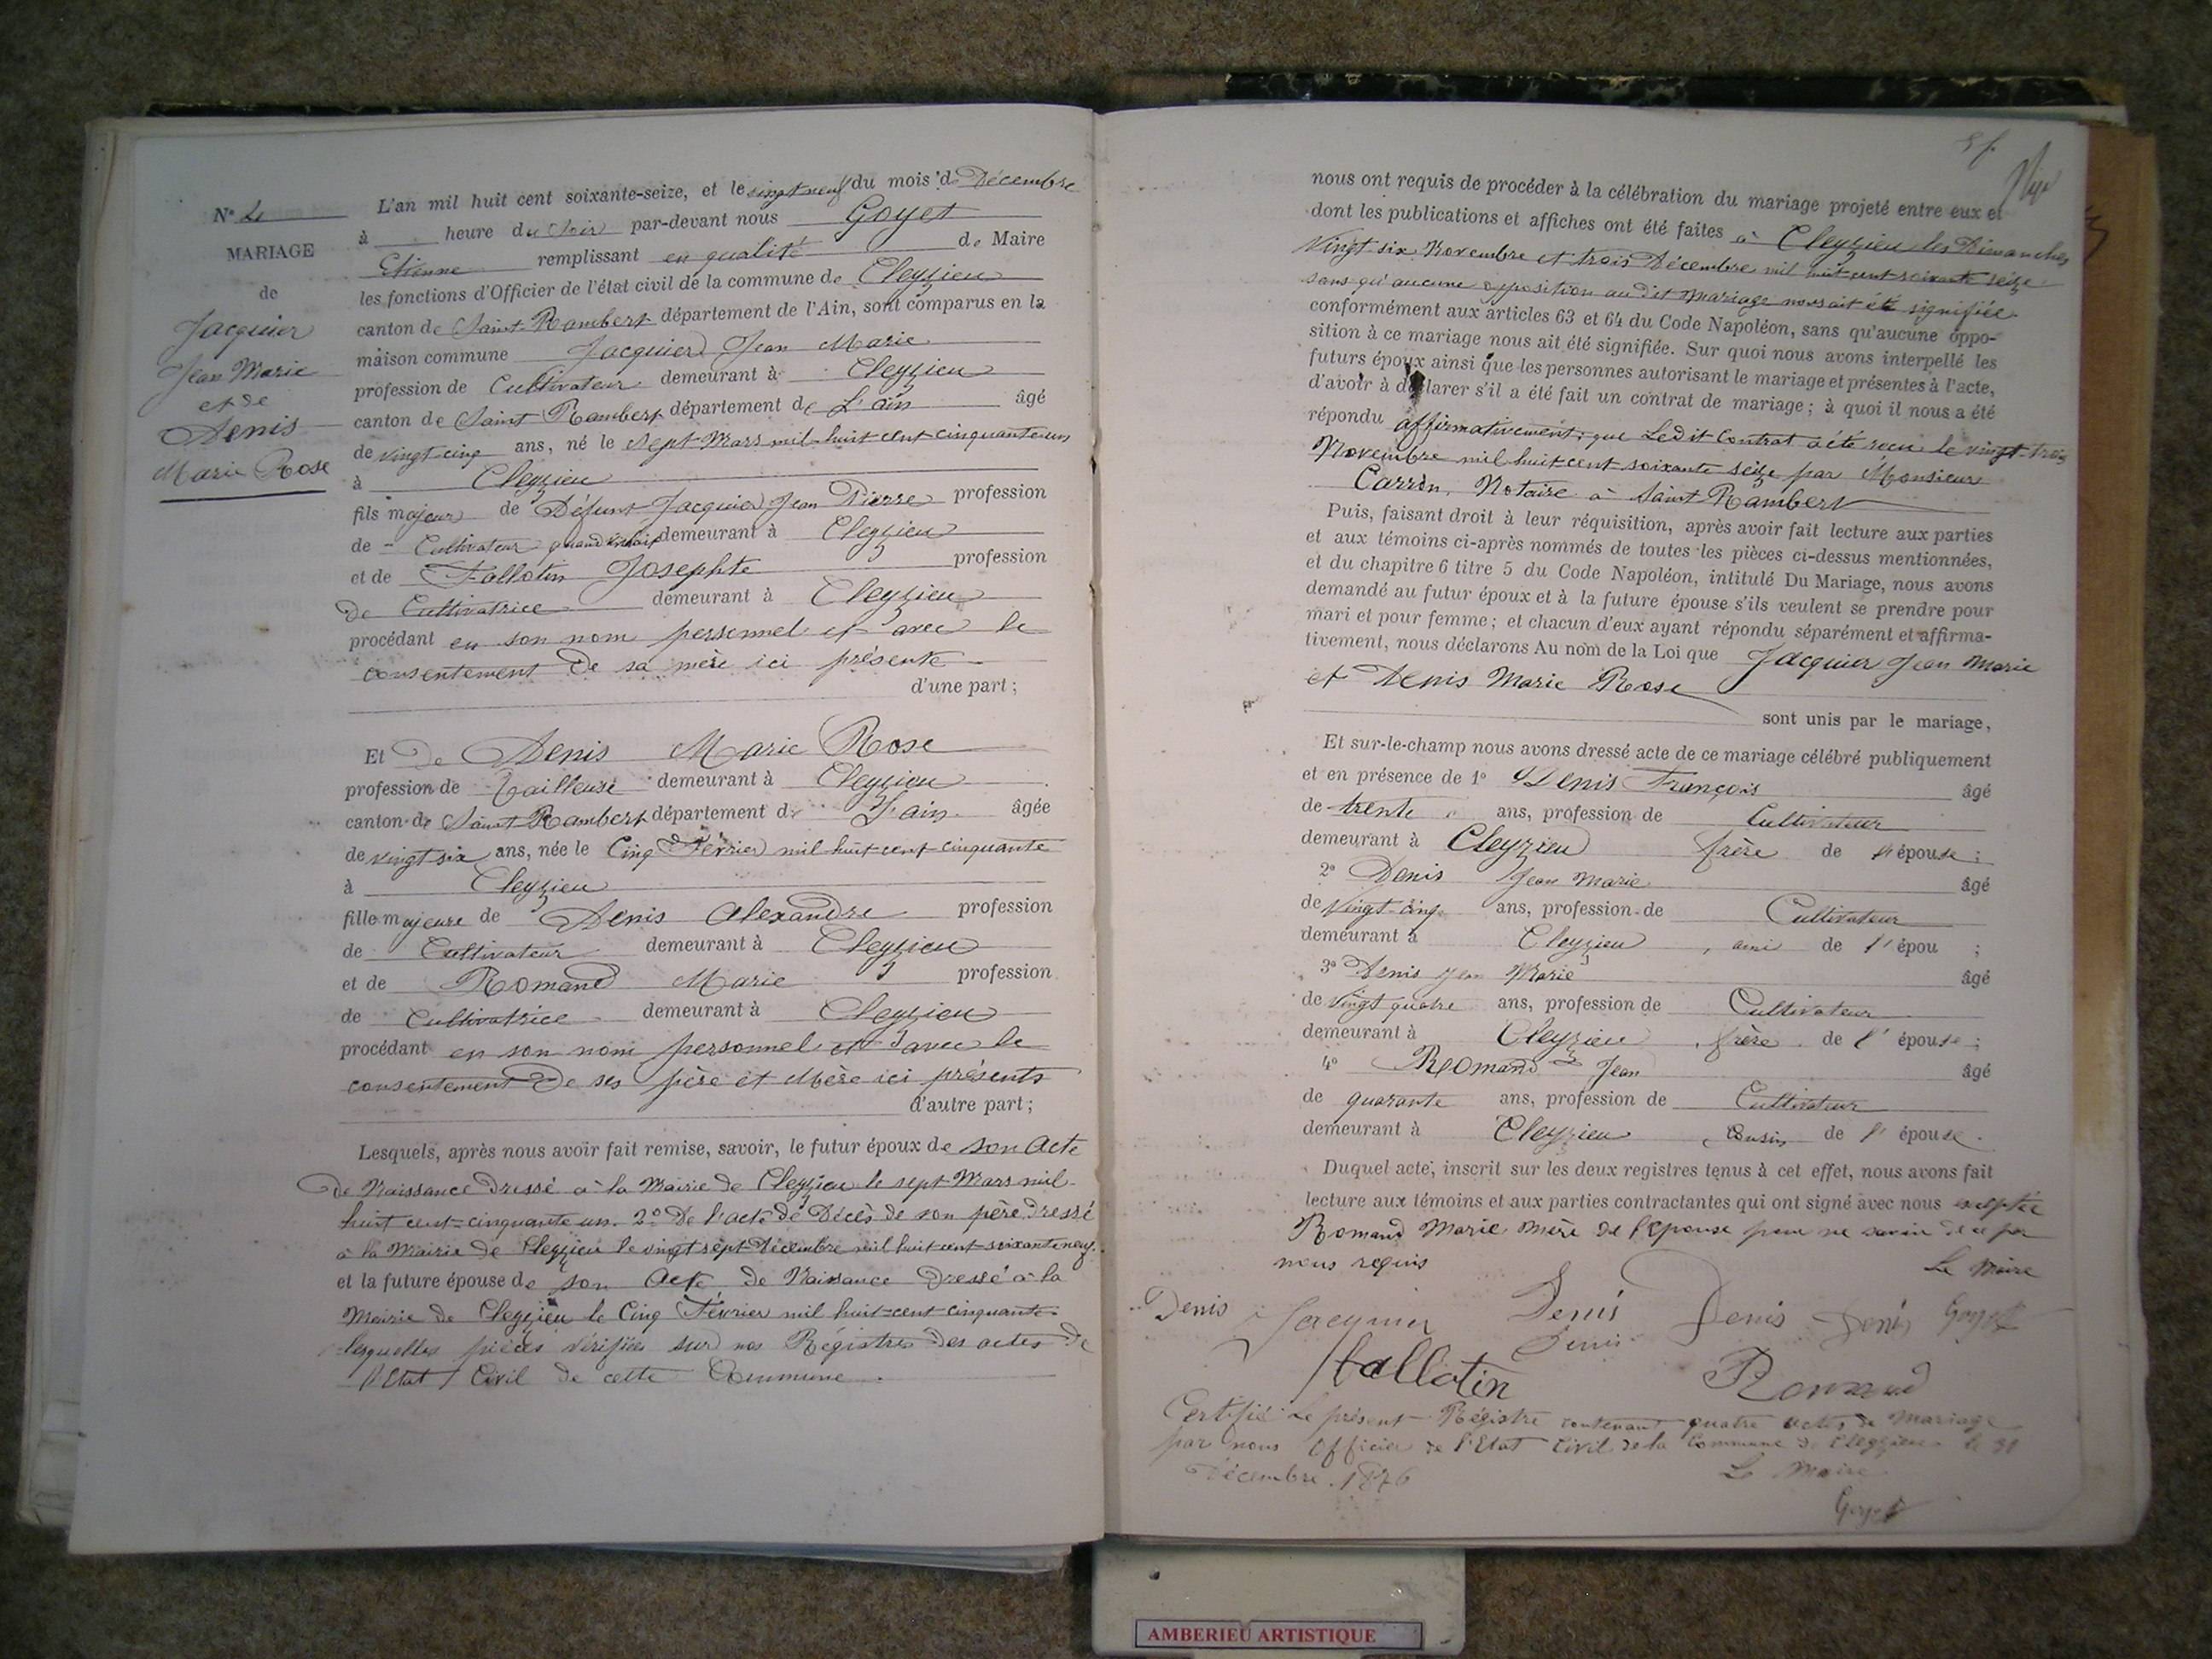 N° 4
MARIAGE
de
Jacquier
Jean Marie
et de
Denis
Marie Rose
L'an mil huit cent soixante-seize, et le vingt neuf du mois de Décembre
à heure du Soir par-devant nous Goyet
Etienne remplissant en qualité de Maire
les fonctions d'Officier de l'état civil de la commune de Cleyzieu
canton de Saint-Rambert département de l'Ain, sont comparus en la
maison commune Jacquier Jean Marie
profession de Cultivateur demeurant à Cleyzieu
canton de Saint Rambert département de L'ain âgé
de vingt cinq ans, né le sept Mars mil huit cent cinquante un
à Cleyzieu
fils majeur de Défunt Jacquier Jean Pierre profession
de - Cultivateur quand vivait demeurant à Cleyzieu
et de Fallotin Josephte profession
de Cultivatrice demeurant à Cleyzieu
procédant en son nom personnel et avec le
consentement de sa mère ici présente
d'une part ;
Et de Denis Marie Rose
profession de Tailleuse demeurant à Cleyzieu
canton de Saint Rambert département de L'ain âgée
de vingt six ans, née le Cinq Février mil huit cent cinquante
à Cleyzieu
fille majeure de Denis Alexandre profession
de Cultivateur demeurant à Cleyzieu
et de Romand Marie profession
de Cultivatrice demeurant à Cleyzieu
procédant en son nom personnel et avec le
consentement de ses père et Mère ici présents
d'autre part ;
Lesquels, après nous avoir fait remise, savoir, le futur époux de son Acte
de Naissance dressé à la Mairie de Cleyzieu le sept Mars mil
huit cent cinquante un. 2° De l'acte de Décès de son père dressé
à la Mairie de Cleyzieu le vingt sept Décembre mil huit cent soixante neuf.
et la future épouse de son Acte de Naissance dressé à la
Mairie de Cleyzieu le Cinq Février mil huit-cent-cinquante.
lesquelles pièces vérifiées sur nos Régistres des actes de
l'Etat Civil de cette Commune.
nous ont requis de procéder à la célébration du mariage projeté entre eux et
dont les publications et affiches ont été faites à Cleyzieu les Dimanches
Vingt six Novembre et trois Décembre mil huit cent soixante seize
sans qu'aucune opposition au dit Mariage nous ait été signifiée
conformément aux articles 63 et 64 du Code Napoléon, sans qu'aucune oppo-
sition à ce mariage nous ait été signifiée. Sur quoi nous avons interpellé les
futurs époux ainsi que les personnes autorisant le mariage et présentes à l'acte,
d'avoir à déclarer s'il a été fait un contrat de mariage ; à quoi il nous a été
répondu affirmativement, que Ledit Contrat a été reçu le vingt-trois
Novembre mil huit cent soixante seize par Monsieur
Carrin, Notaire à Saint Rambert
Puis, faisant droit à leur réquisition, après avoir fait lecture aux parties
et aux témoins ci-après nommés de toutes les pièces ci-dessus mentionnées,
et du chapitre 6 titre 5 du Code Napoléon, intitulé Du Mariage, nous avons
demandé au futur époux et à la future épouse s'ils veulent se prendre pour
mari et pour femme ; et chacun d'eux ayant répondu séparément et affirma-
tivement, nous déclarons Au nom de la Loi que Jacquier Jean Marie
et Denis Marie Rose
sont unis par le mariage,
Et sur-le-champ nous avons dressé acte de ce mariage célébré publiquement
et en présence de 1° Denis François âgé
de trente ans, profession de Cultivateur
demeurant à Cleyzieu frère de l'épouse ;
2° Denis Jean Marie âgé
de Vingt-cinq ans, profession de Cultivateur
demeurant à Cleyzieu, ami de l'épou ;
3° Denis Jean Marie âgé
de Vingt quatre ans, profession de Cultivateur
demeurant à Cleyzieu, frère de l'épouse ;
4° Romand Jean âgé
de quarante ans, profession de Cultivateur
demeurant à Cleyzieu, Cousin de l'épouse.
Duquel acte, inscrit sur les deux registres tenus à cet effet, nous avons fait
lecture aux témoins et aux parties contractantes qui ont signé avec nous exceptée
Romand Marie Mère de l'Epouse pour ne savoir de ce par
nous requis
Le Maire
Denis Jacquier Denis Denis Denis Goyet
Denis
Fallotin Romand
Certifié Le présent Régistre contenant quatre actes de Mariage
par nous Officier de l'Etat Civil de la Commune de Cleyzieu le 31
Décembre 1876
Le Maire
Goyet
AMBERIEU ARTISTIQUE